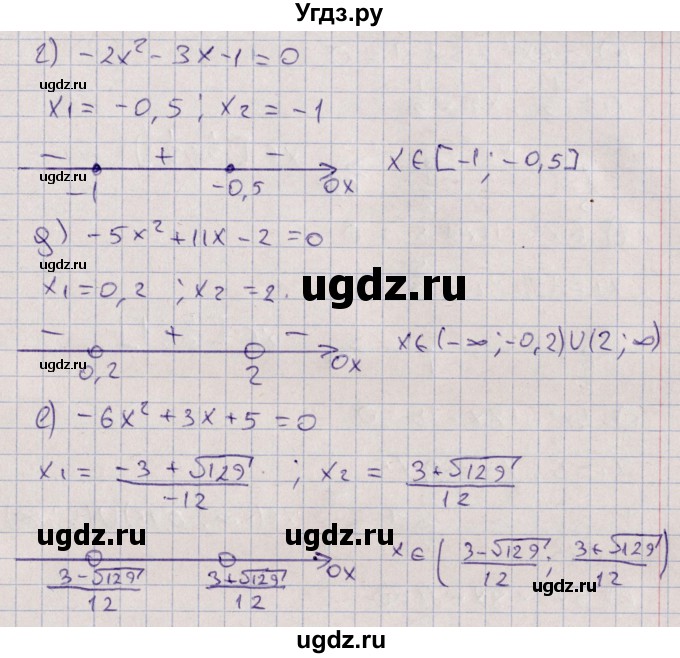 Угдз.ру
г) -2x² - 3x - 1 = 0
ugdz.ru
x₁ = -0,5 ; x₂ = -1
- + -
-1 -0,5 0x
x ∈ [-1 ; -0,5]
ugdz.ru
д) -5x² + 11x - 2 = 0
ugdz.ru
x₁ = 0,2 ; x₂ = 2.
ugdz.ru
- + -
0,2 2 0x
x ∈ (-∞ ; -0,2) ∪ (2 ; ∞)
ugdz.ru
е) -6x² + 3x + 5 = 0
ugdz.ru
x₁ = (-3 + √129)/(-12) ; x₂ = (3 + √129)/12
ugdz.ru ugdz.ru
(3 - √129)/12 (3 + √129)/12 0x
x ∈ ((3 - √129)/12 ; (3 + √129)/12)
ugdz.ru